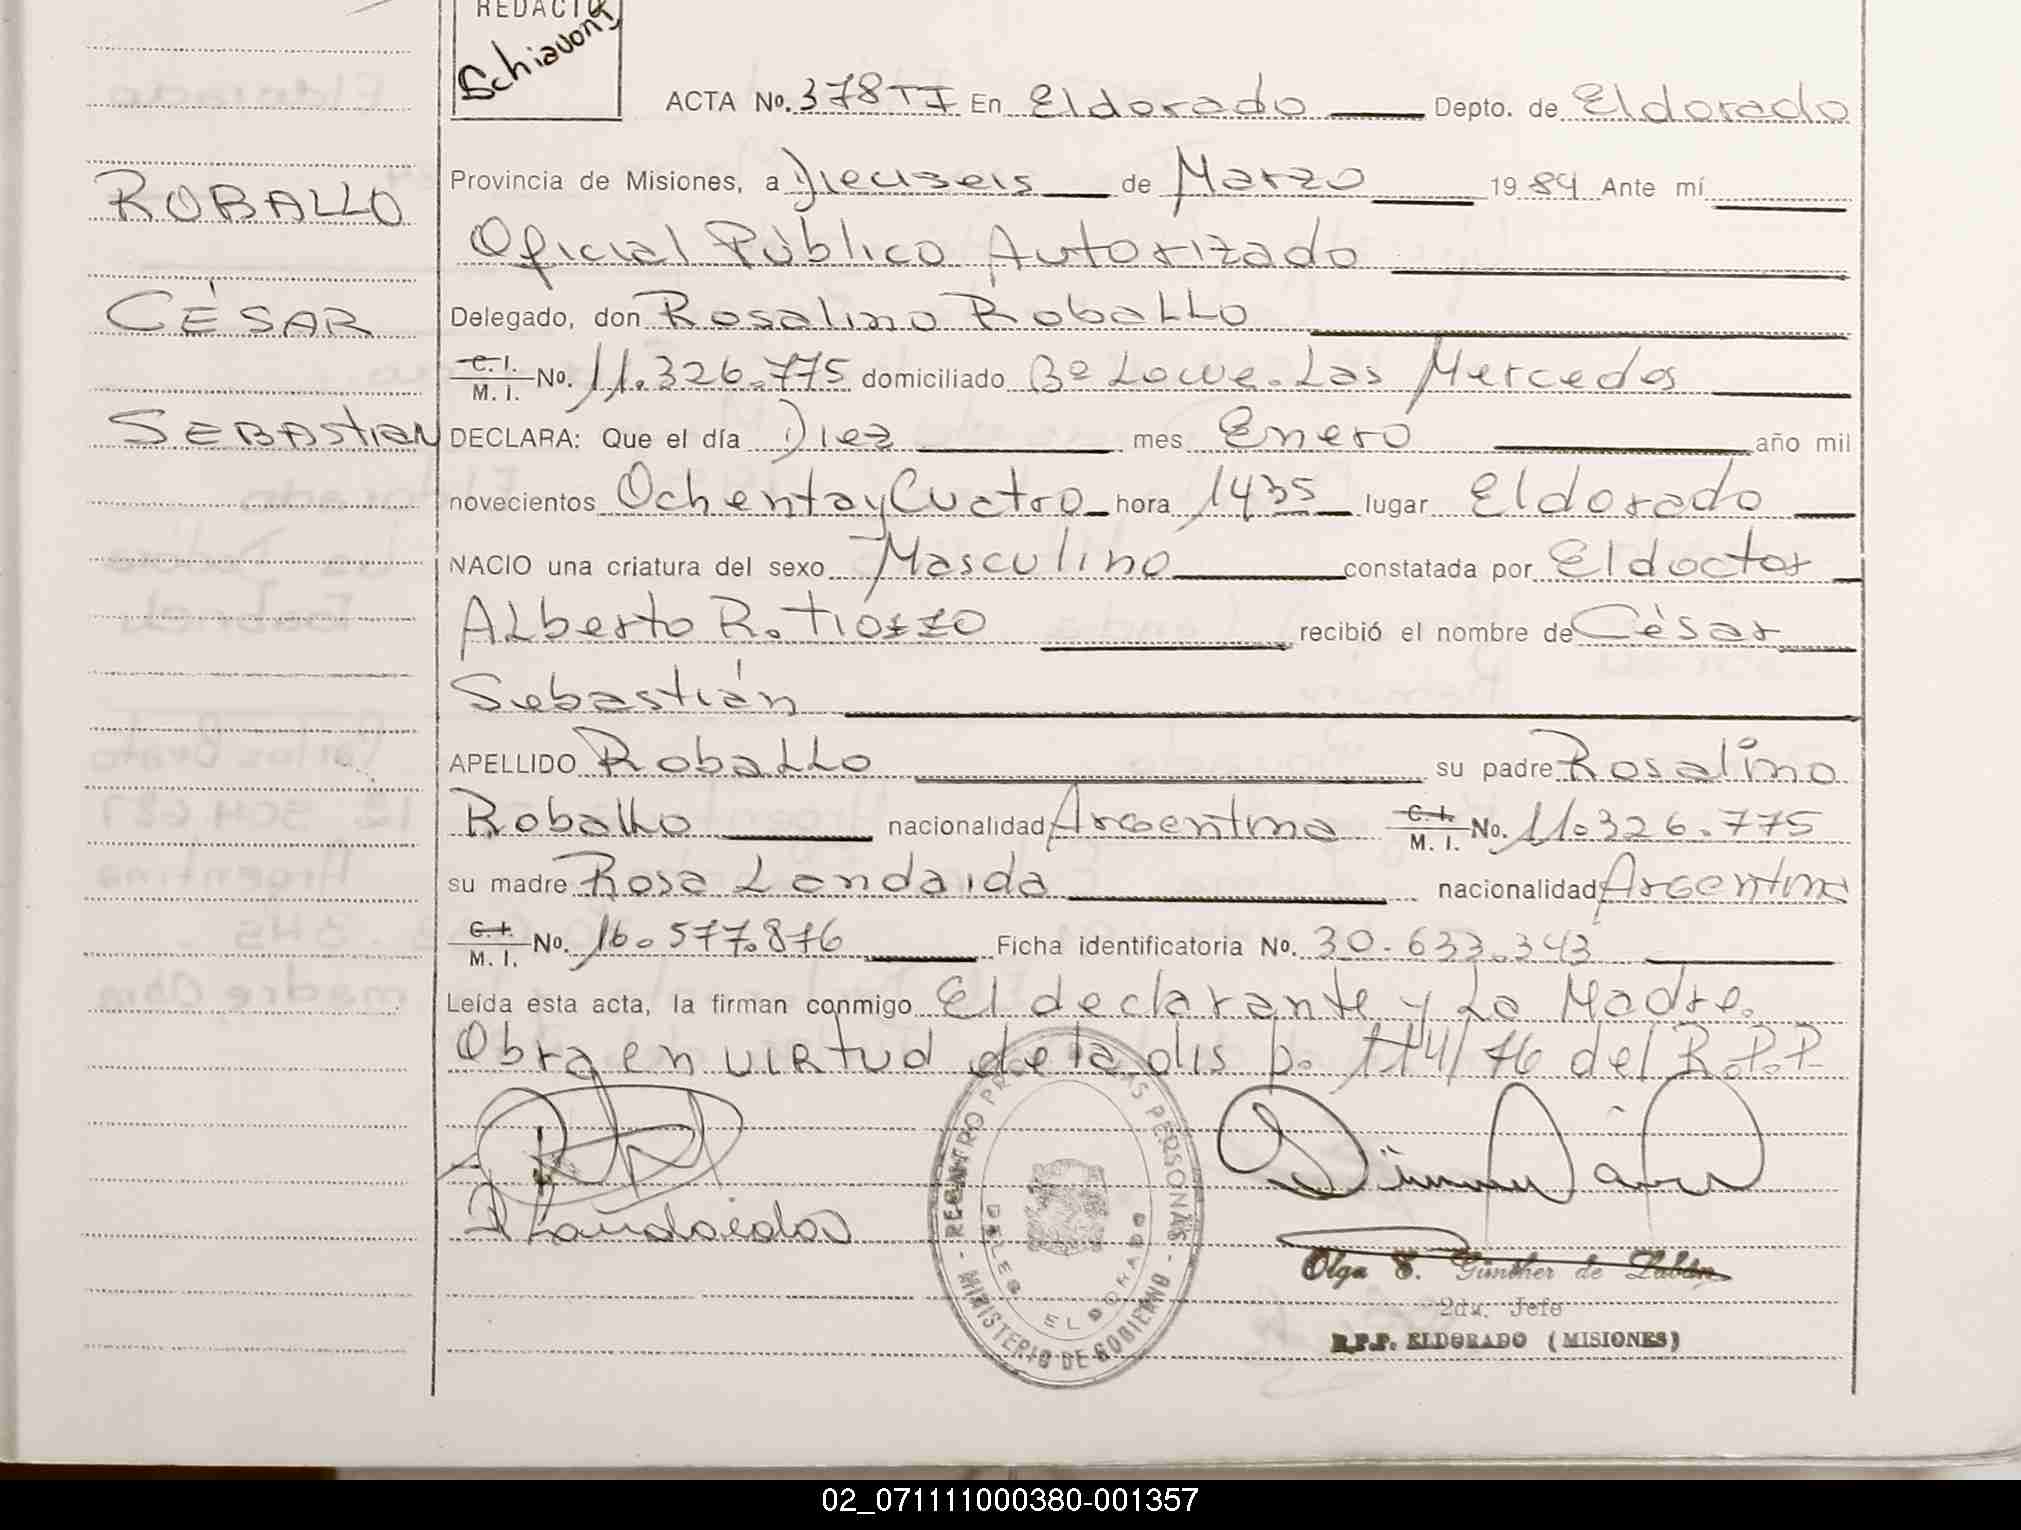 REDACTO
Schiavoni
ACTA No. 378TI En Eldorado Depto. de Eldorado
ROBALLO
Provincia de Misiones, a Dieciseis de Marzo 1984 Ante mí
Oficial Público Autorizado
CÉSAR
Delegado, don Rosalino Roballo
C. I.
M. I. No. 11.326.775 domiciliado Bº Lowe-Las Mercedes
SEBAStIAN
DECLARA: Que el día Diez mes Enero año mil
novecientos Ochenta y Cuatro hora 1435 lugar Eldorado
NACIO una criatura del sexo Masculino constatada por El doctor
Alberto R. recibió el nombre de César
Sebastián
APELLIDO Roballo su padre Rosalino
Roballo nacionalidad Argentina C. I. M. I. No. 11.326.775
su madre Rosa Landaida nacionalidad Argentina
C. I.
M. I. No. 16.577.876 Ficha identificatoria No. 30.633.343
Leída esta acta, la firman conmigo El declarante y La Madre.
Obra en virtud de la disp. 114/76 del R.P.P.
R Landaida
REGISTRO PROVINCIAL DE LAS PERSONAS
MINISTERIO DE GOBIERNO
ELDORADO
Olga E. Günther de Zabán
2da. Jefe
R.P.P. ELDORADO (MISIONES)
02_071111000380-001357